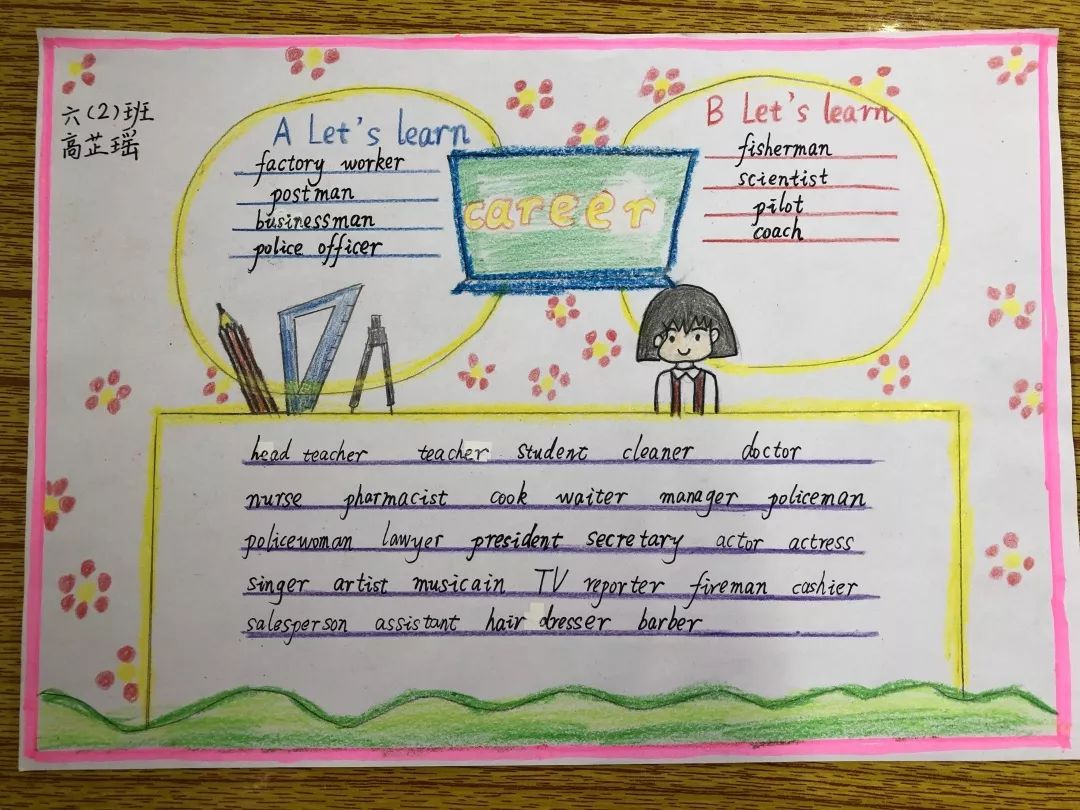 六(2)班
高芷瑶
A Let's learn
factory worker
postman
businessman
police officer
career
B Let's learn
fisherman
scientist
pilot
coach
head teacher teacher student cleaner doctor
nurse pharmacist cook waiter manager policeman
policewoman lawyer president secretary actor actress
singer artist musicain TV reporter fireman cashier
salesperson assistant hair dresser barber